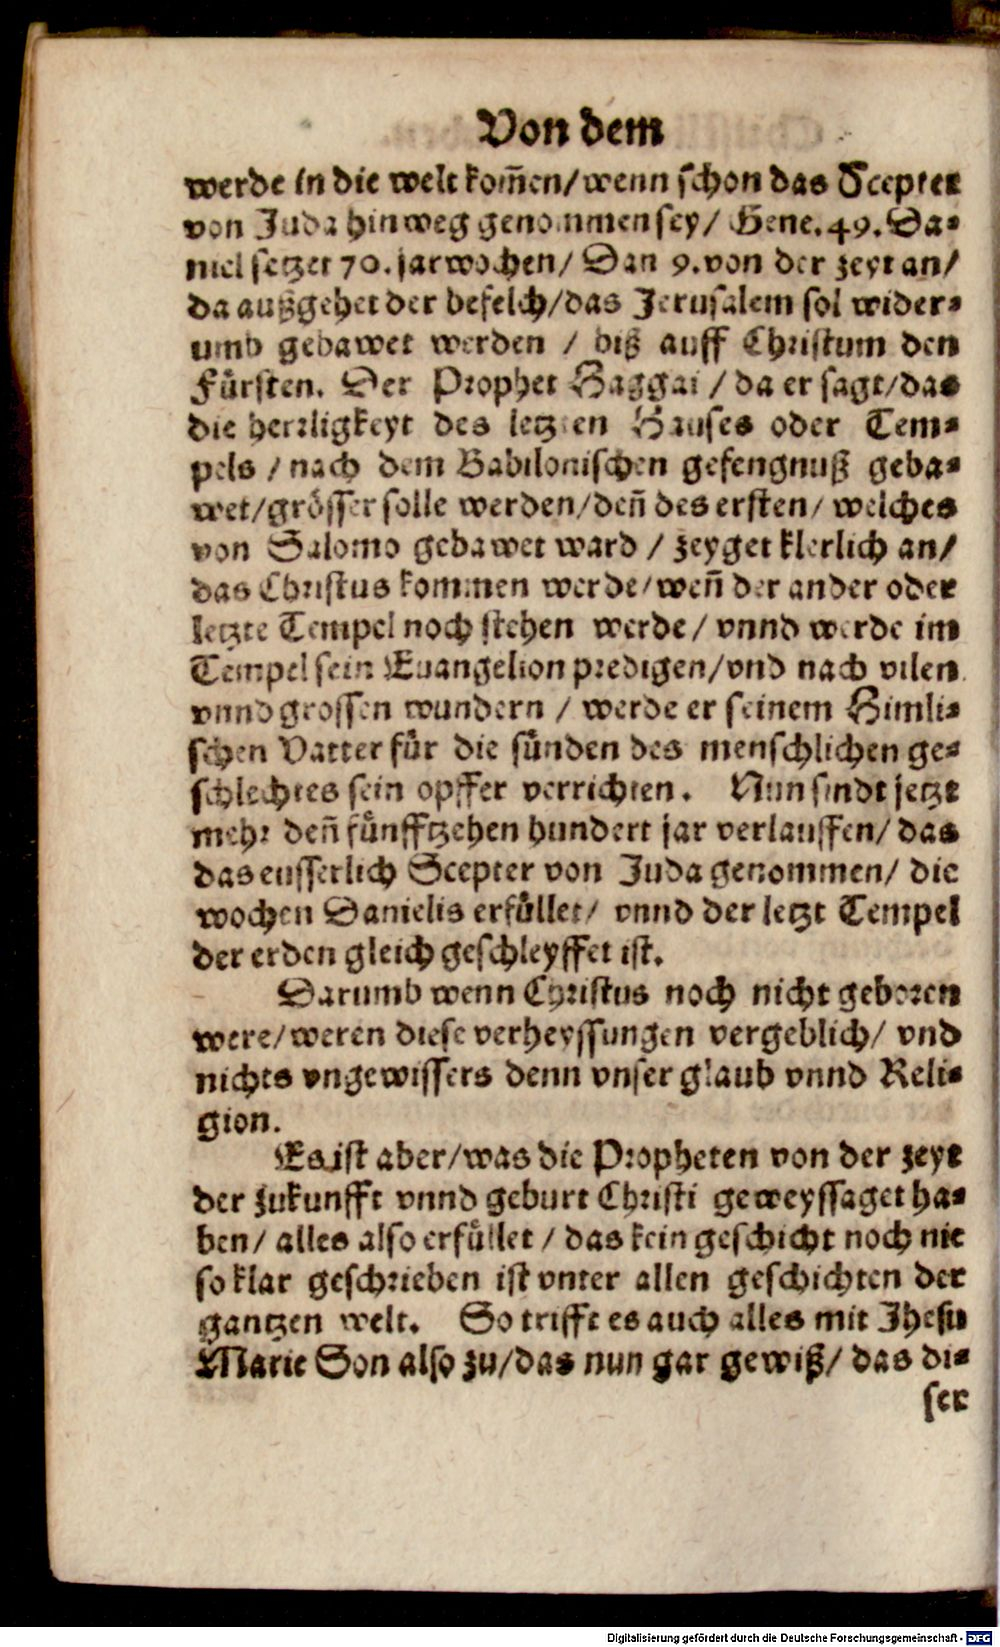 Von dem
werde in die welt kom̃en/wenn schon das Scepter
von Juda hinweg genommen sey/ Gene. 49. Da-
niel setzet 70. jarwochen/ Dan 9. von der zeyt an/
da außgehet der befelch/das Jerusalem sol wider-
umb gebawet werden / biß auff Christum den
Fürsten. Der Prophet Haggai / da er sagt/das
die herrligkeyt des letzten Hauses oder Tem-
pels / nach dem Babilonischen gefengnuß geba-
wet/grösser solle werden/deñ des ersten/ welches
von Salomo gebawet ward / zeyget klerlich an/
das Christus kommen werde/weñ der ander oder
letzte Tempel noch stehen werde/ vnnd werde im
Tempel sein Euangelion predigen/vnd nach vilen
vnnd grossen wundern / werde er seinem Himli-
schen Vatter für die sünden des menschlichen ge-
schlechtes sein opffer verrichten. Nun sindt jetzt
mehr deñ fünfftzehen hundert jar verlauffen/ das
das eusserlich Scepter von Juda genommen/ die
wochen Danielis erfüllet/ vnnd der letzt Tempel
der erden gleich geschleyffet ist.
Darumb wenn Christus noch nicht geboren
were/weren diese verheyssungen vergeblich/ vnd
nichts vngewissers denn vnser glaub vnnd Reli-
gion.
Es ist aber/was die Propheten von der zeyt
der zukunfft vnnd geburt Christi geweyssaget ha-
ben/ alles also erfüllet / das kein geschicht noch nie
so klar geschrieben ist vnter allen geschichten der
gantzen welt. So trifft es auch alles mit Jhesu
Marie Son also zu/das nun gar gewiß/ das di-
ser
Digitalisierung gefördert durch die Deutsche Forschungsgemeinschaft - DFG